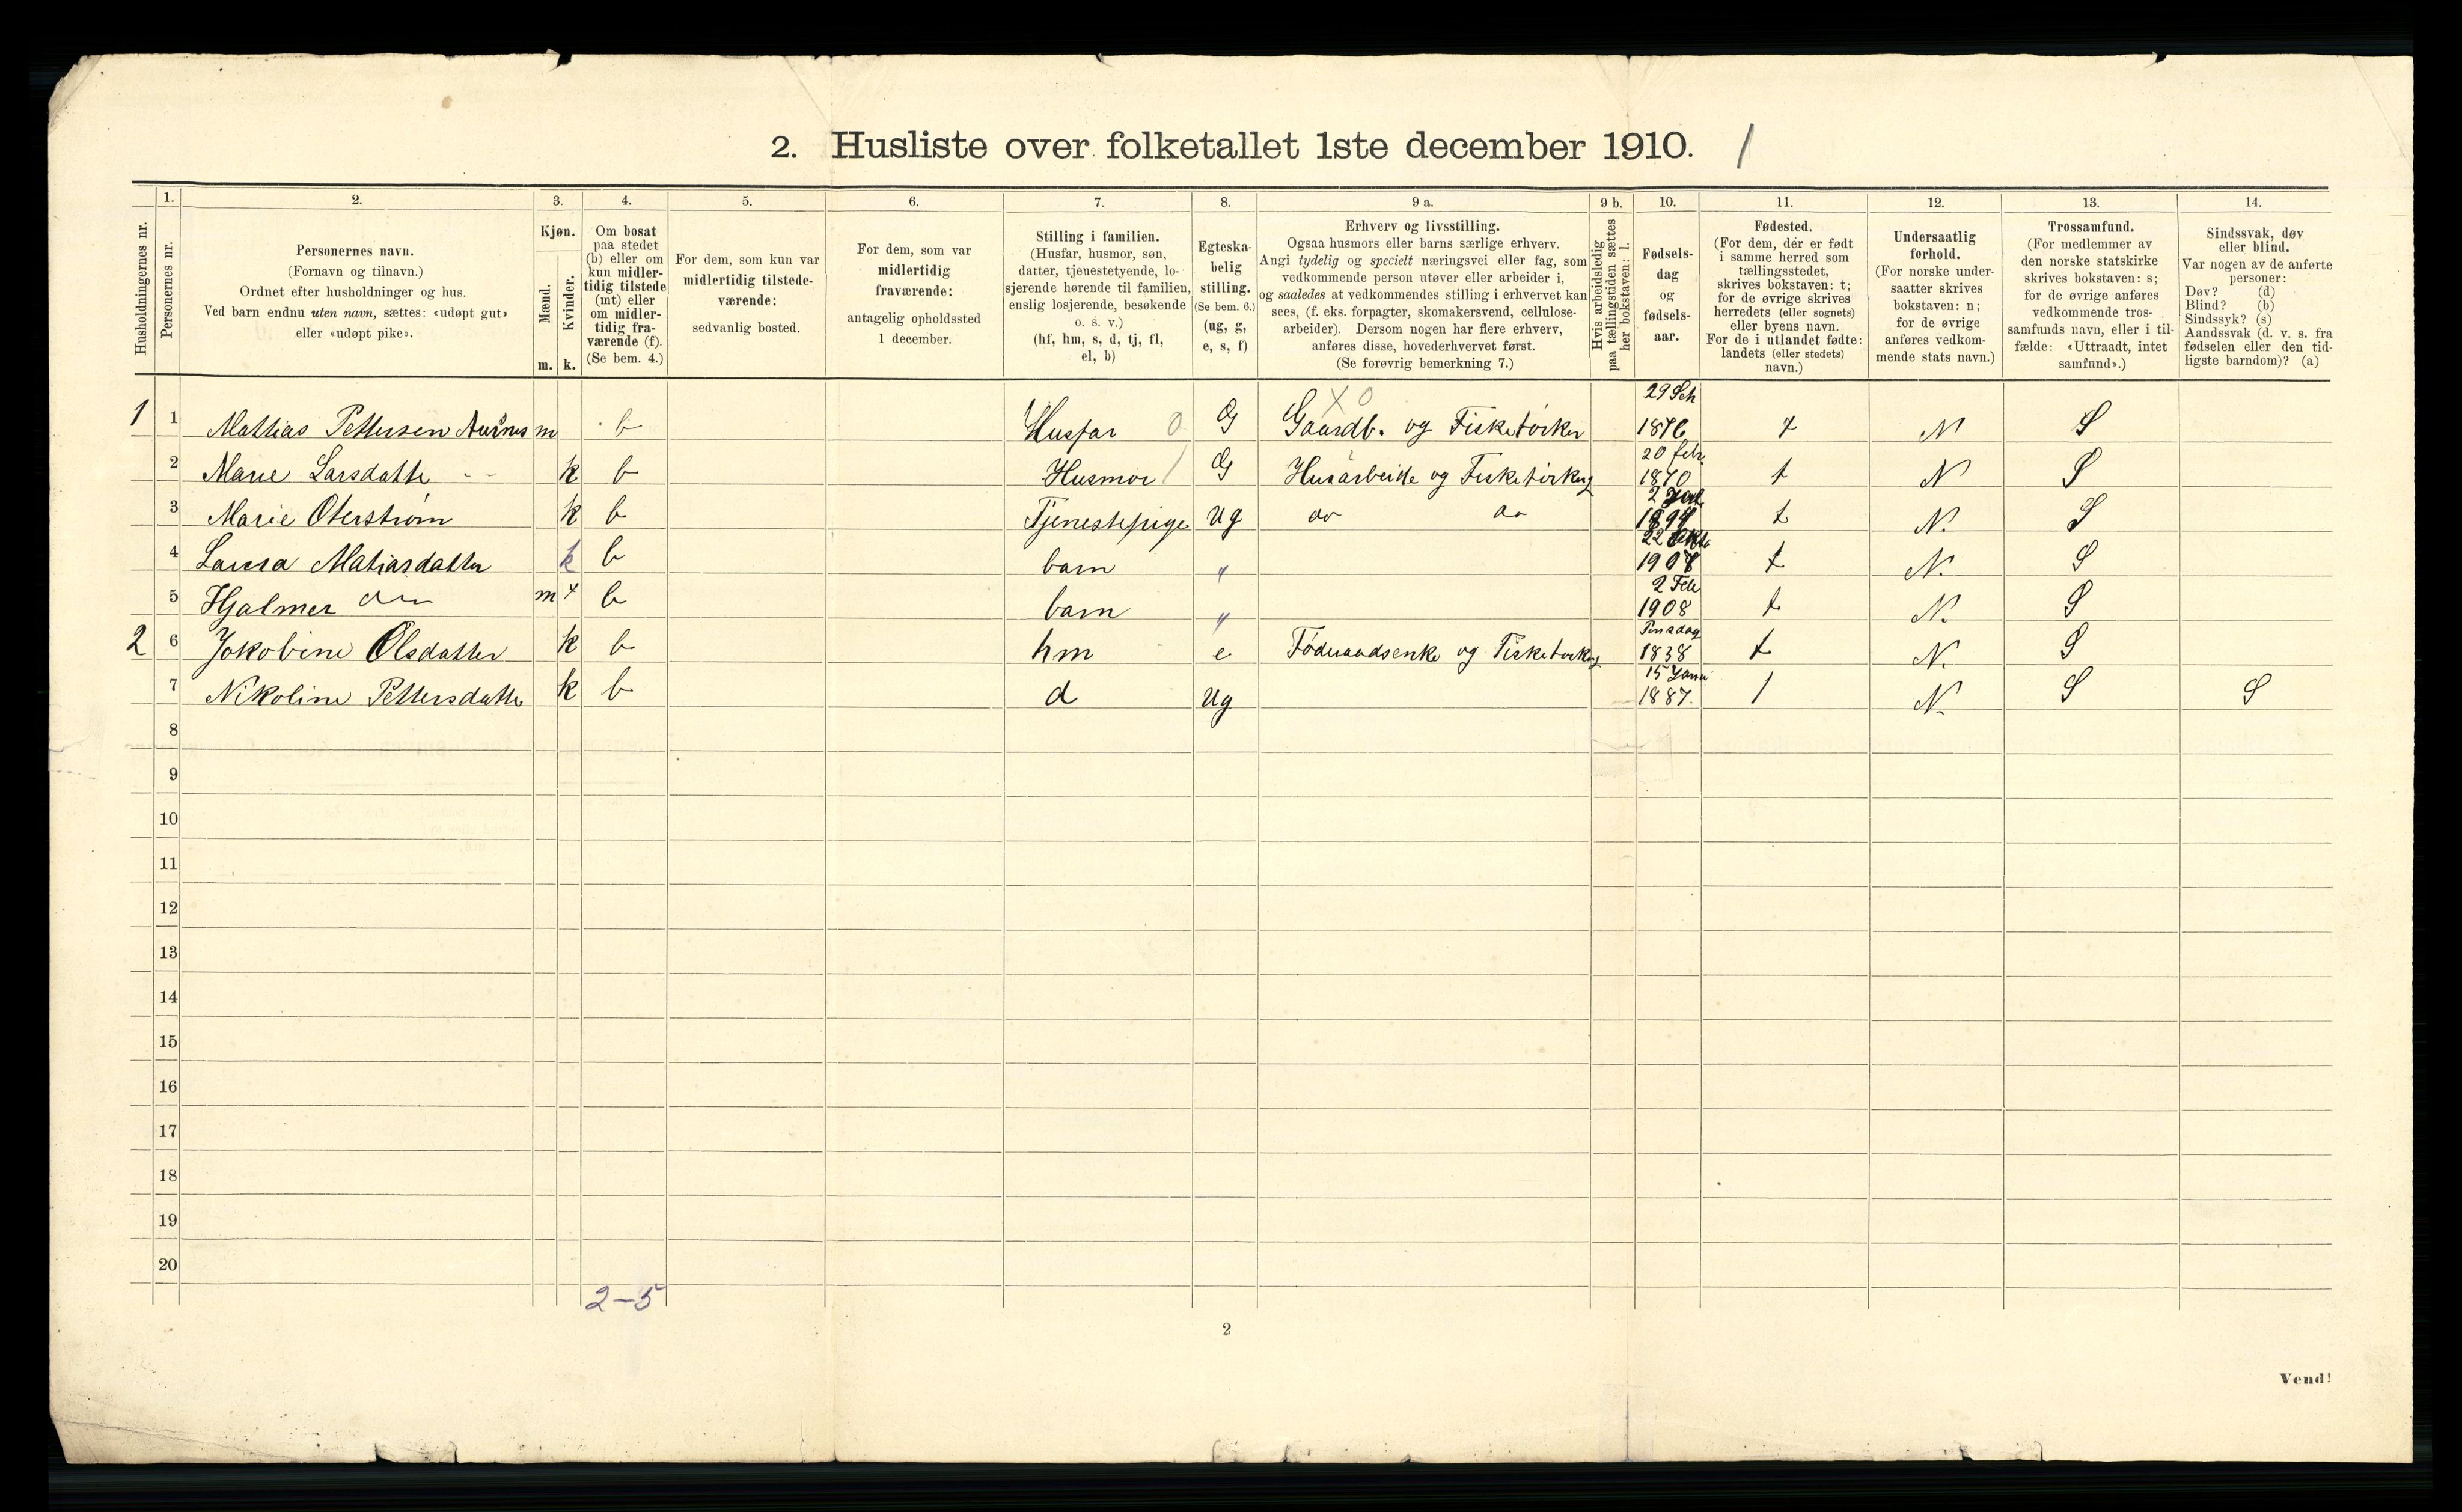 2. Husliste over folketallet 1ste december 1910. 1
Husholdningernes nr.
1.
Personernes nr.
2.
Personernes navn.
(Fornavn og tilnavn.)
Ordnet efter husholdninger og hus.
Ved barn endnu uten navn, sættes: «udøpt gut»
eller «udøpt pike».
3.
Kjøn.
Mænd.
Kvinder.
m. k.
4.
Om bosat
paa stedet
(b) eller om
kun midler-
tidig tilstede
(mt) eller
om midler-
tidig fra-
værende (f).
(Se bem. 4.)
5.
For dem, som kun var
midlertidig tilstede-
værende:
sedvanlig bosted.
6.
For dem, som var
midlertidig
fraværende:
antagelig opholdssted
1 december.
7.
Stilling i familien.
(Husfar, husmor, søn,
datter, tjenestetyende, lo-
sjerende hørende til familien,
enslig losjerende, besøkende
o. s. v.)
(hf, hm, s, d, tj, fl,
el, b)
8.
Egteska-
belig
stilling.
(Se bem. 6.)
(ug, g,
e, s, f)
9 a.
Erhverv og livsstilling.
Ogsaa husmors eller barns særlige erhverv.
Angi tydelig og specielt næringsvei eller fag, som
vedkommende person utøver eller arbeider i,
og saaledes at vedkommendes stilling i erhvervet kan
sees, (f. eks. forpagter, skomakersvend, cellulose-
arbeider). Dersom nogen har flere erhverv,
anføres disse, hovederhvervet først.
(Se forøvrig bemerkning 7.)
9 b.
Hvis arbeidsledig
paa tællingstiden sættes
her bokstaven: l.
10.
Fødsels-
dag
og
fødsels-
aar.
11.
Fødested.
(For dem, der er født
i samme herred som
tællingsstedet,
skrives bokstaven: t;
for de øvrige skrives
herredets (eller sognets)
eller byens navn.
For de i utlandet fødte:
landets (eller stedets)
navn.)
12.
Undersaatlig
forhold.
(For norske under-
saatter skrives
bokstaven: n;
for de øvrige
anføres vedkom-
mende stats navn.)
13.
Trossamfund.
(For medlemmer av
den norske statskirke
skrives bokstaven: s;
for de øvrige anføres
vedkommende tros-
samfunds navn, eller i til-
fælde: «Uttraadt, intet
samfund».)
14.
Sindssvak, døv
eller blind.
Var nogen av de anførte
personer:
Døv? (d)
Blind? (b)
Sindssyk? (s)
Aandssvak (d. v. s. fra
fødselen eller den tid-
ligste barndom)? (a)
1 1 Mattias Pettersen m b Husfar 0 G X 0 Gaardb. og Fisketørker 29 1876 t N S
2 Marie Larsdatter k b Husmor G Husarbeide og Fisketørking 20 febr. 1870 t N S
3 Marie Oterstrøm k b Tjenestepige ug do do 2 1894 t N. S
4 Laura Matiasdatter k b barn " 22 t N. S
5 Hjalmer do m b barn " 2 Feb 1908 t N. S
2 6 Jokobine Olsdatter k b hm e Føderaadsenke og Fisketørking 1838 t N. S
7 Nikoline Pettersdatter k b d ug 15 Janu 1887. N. S S
8
9
10
11
12
13
14
15
16
17
18
19
20
2-5
2
Vend!